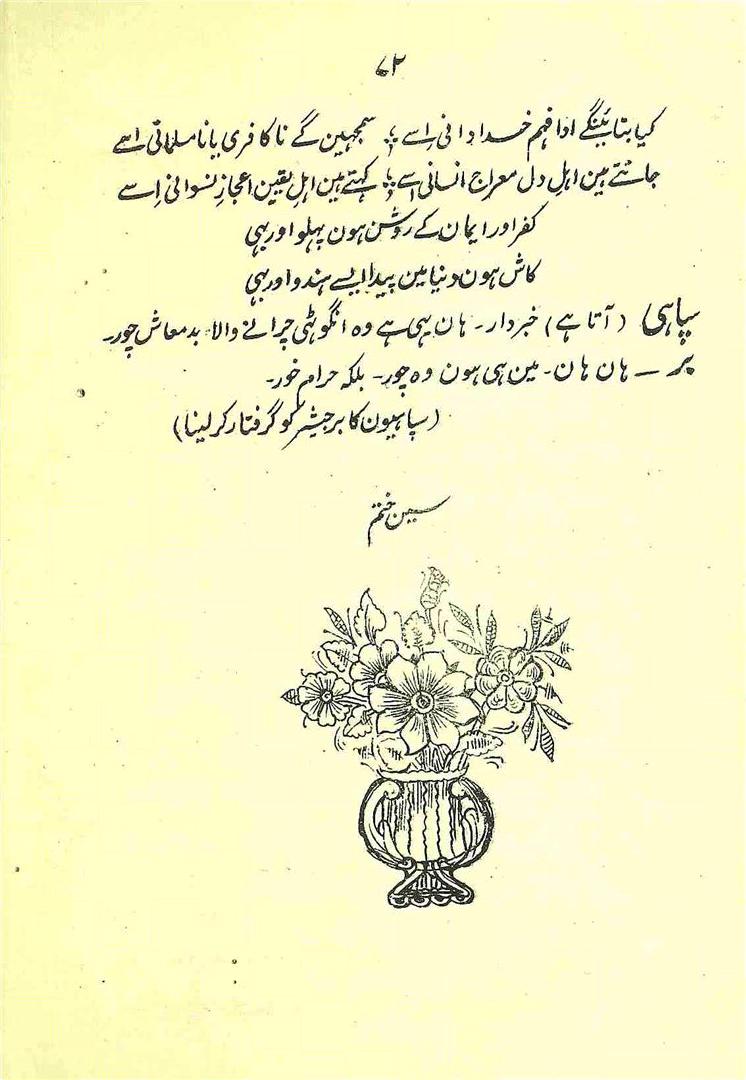 ۷۲
کیا بتائینگے ادا فہم خدادانی اِسے ؛ سمجہین گے نا کافری یا نا مسلمانی اسے
جانتے ہین اہلِ دل معراج انسانی اسے ؛ کہتے ہین اہلِ یقین اعجازِ نسوانی اِسے
کفر اور ایمان کے روشن ہون پہلو اور بہی
کاش ہون دنیا مین پیدا ایسے ہندو اور بہی
سپاہی (آتا ہے) خبردار۔ ہان یہی ہے وہ انگوٹہی چرانے والا۔ بدمعاش چور۔
پر — ہان ہان۔ مین ہی ہون وہ چور۔ بلکہ حرام خور۔
(سپاہیون کا برجیشر کو گرفتار کر لینا)
سین ختم